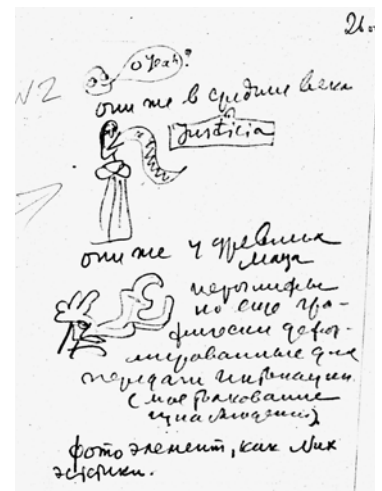 26
N2
o Yeah?
они же в средние века
Justicia
они же у древних
Майя
иероглифы
но еще гра-
фически дефор-
мированные для
передачи интонации
(мое толкование
и
фото элемент, как Мих
эстетики.